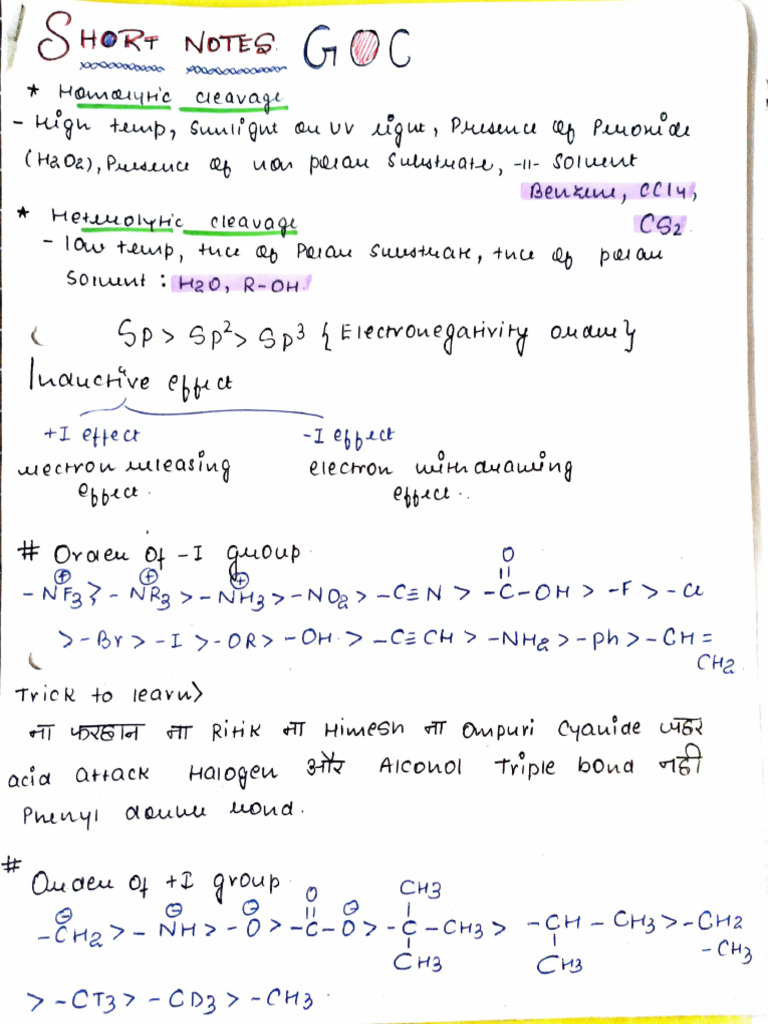 SHORT NOTES GOC
* Homolytic cleavage
- High temp, sunlight or UV light, Presence of Peroxide
(H2O2), Presence of non polar substrate, -11- solvent
Benzene, CCl4,
CS2
* Heterolytic cleavage
- low temp, tnce of Polar substrate, tnce of polar
solvent : H2O, R-OH.
Sp > Sp² > Sp³ { Electronegativity order }
Inductive effect
+I effect -I effect
electron releasing electron withdrawing
effect. effect..
# Order of -I group
O
- NF3⊕ > - NR3⊕ > - NH3⊕ > -NO2 > -C≡N > -C-OH > -F > -Cl
> -Br > -I > -OR > -OH. > -C≡CH > -NH2 > -Ph > -CH =
CH2.
Trick to learn >
ना फरहान ना Ritik ना Himesh ना Ompuri Cyanide जहर
acid attack Halogen और Alcohol Triple bond नही
Phenyl double bond.
# Order of +I group
O CH3
-CH2⊖ > - NH⊖ > -O⊖ > -C-O⊖ > -C-CH3 > -CH - CH3 > -CH2
CH3 CH3 -CH3
> -CT3 > -CD3 > -CH3.